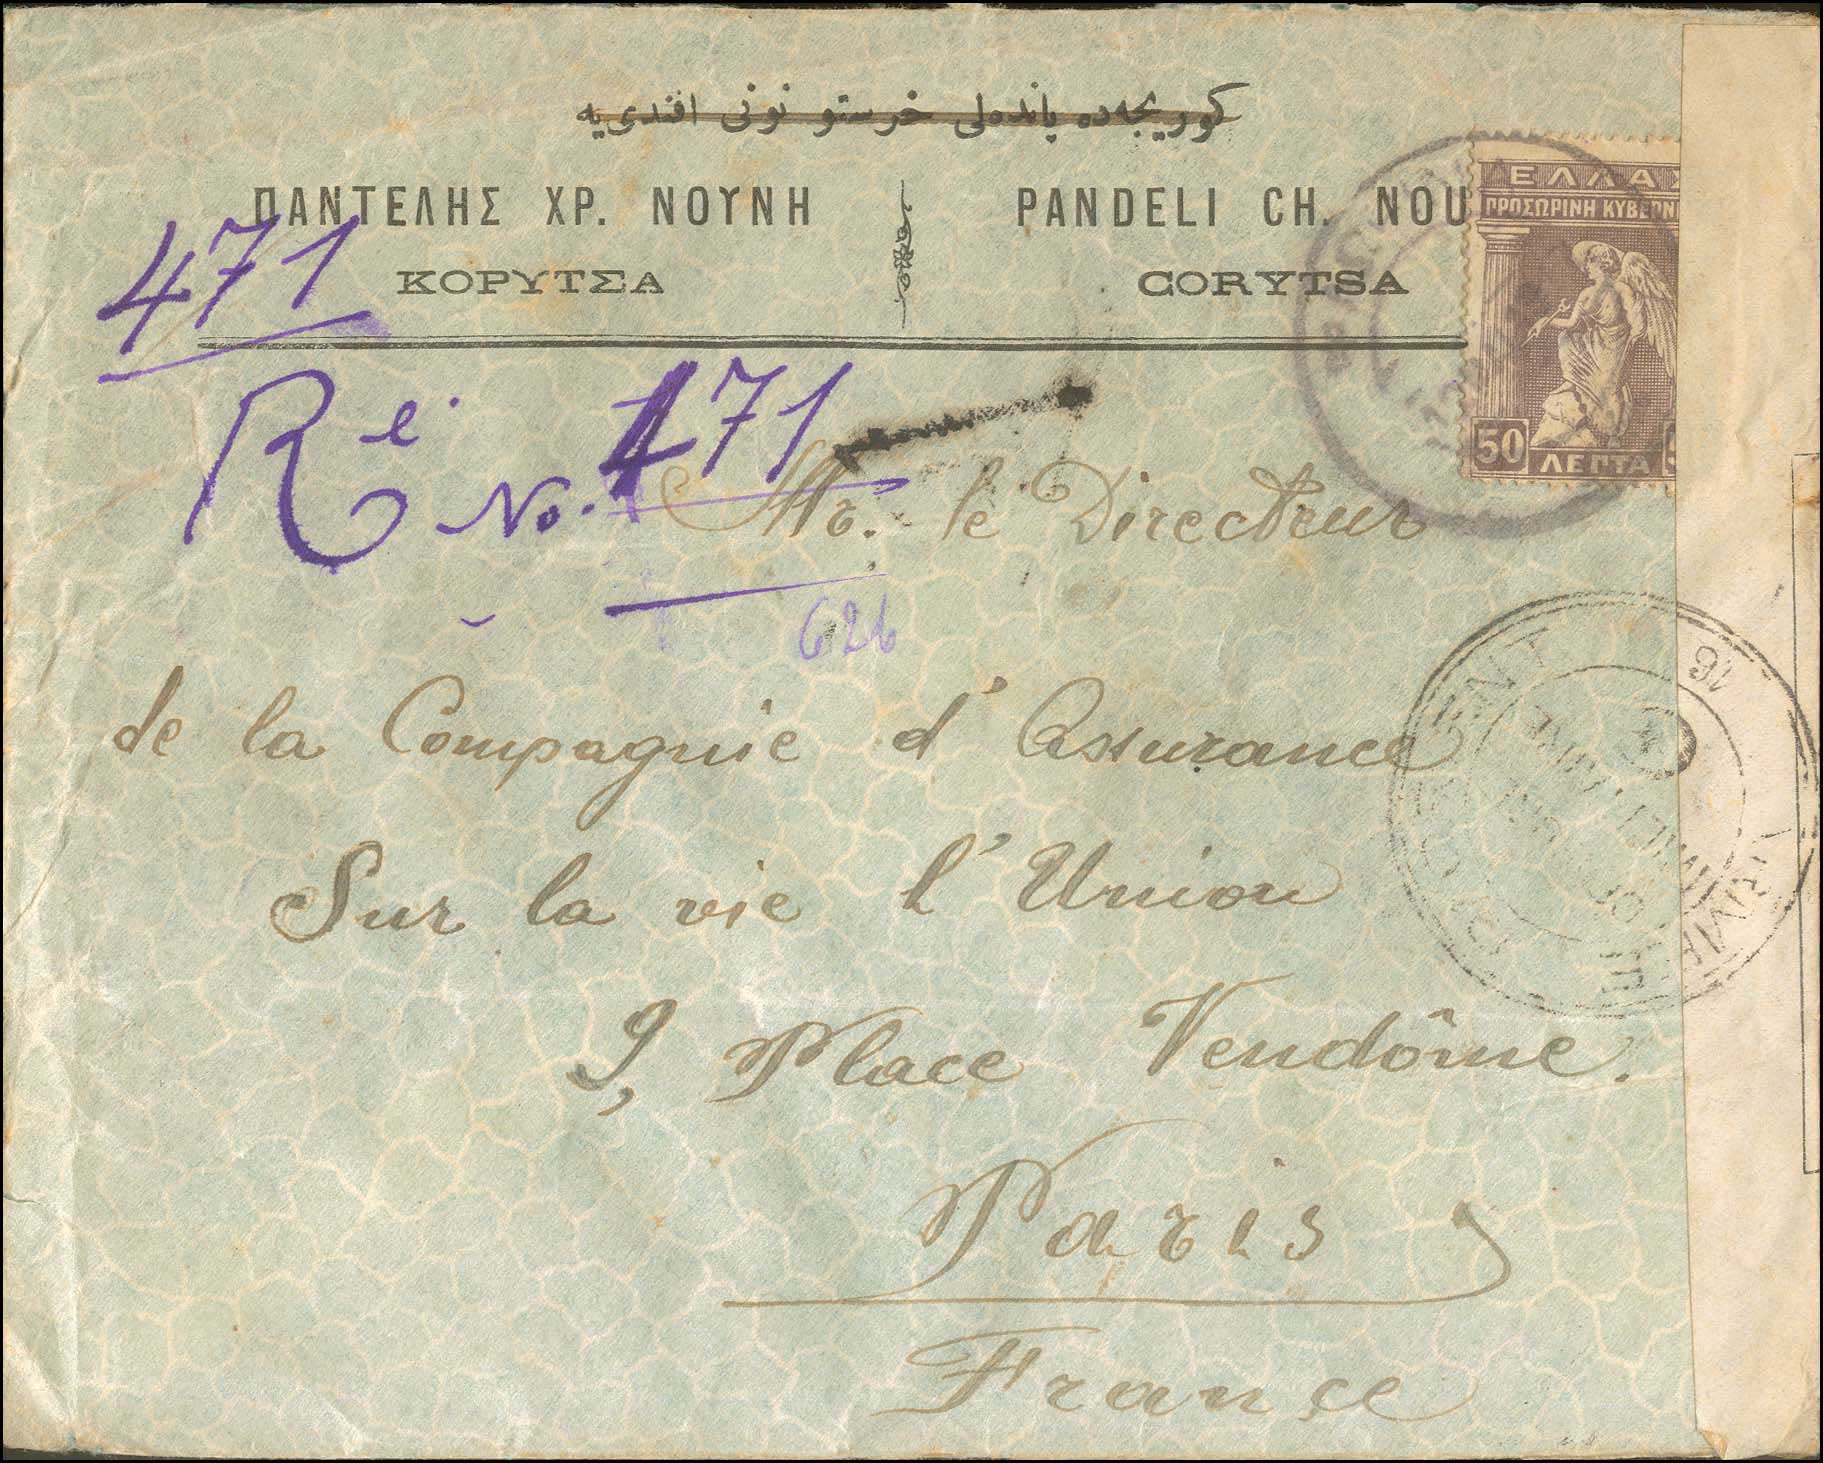 كوريجه‌ده پانده‌لی خرستو نونی افندی‌یه
ΠΑΝΤΕΛΗΣ ΧΡ. ΝΟΥΝΗ
ΚΟΡΥΤΣΑ
PANDELI CH. NOU
CORYTSA
ΕΛΛΑΣ
ΠΡΟΣΩΡΙΝΗ ΚΥΒΕΡΝ
50
ΛΕΠΤΑ
471
Re. No. 471
626
Mr. le Directeur
de la Compagnie d'Assurance
Sur la vie l'Union
9, Place Vendôme.
Paris
France
16